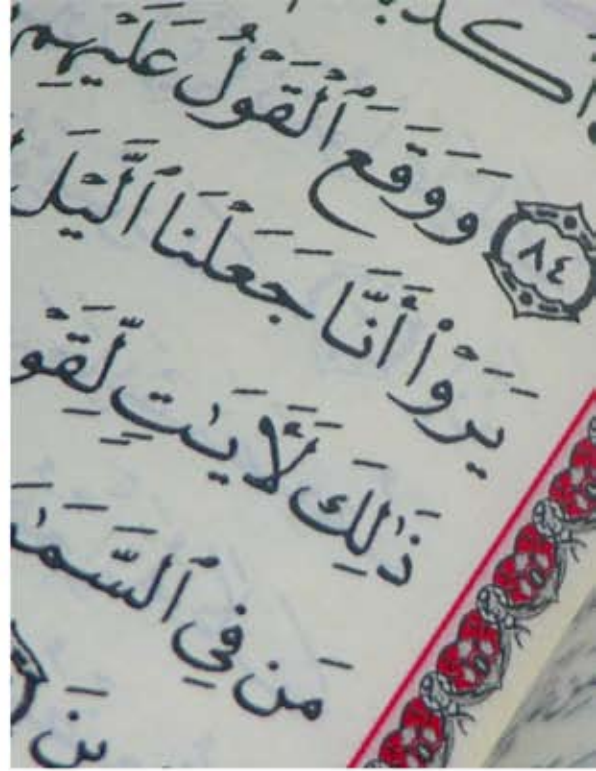 أَكَذَّبْ
٨٤ وَوَقَعَ ٱلْقَوْلُ عَلَيْهِم
يَرَوْا۟ أَنَّا جَعَلْنَا ٱلَّيْلَ
ذَٰلِكَ لَـَٔايَـٰتٍ لِّقَوْ
مَن فِى ٱلسَّمَـٰ
ينَ